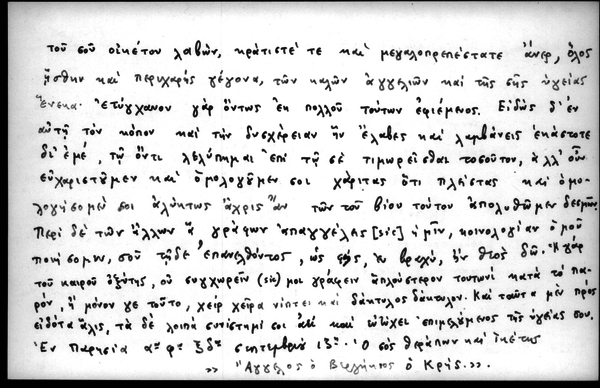 τοῦ σοῦ οἰκέτου λαβών, κράτιστέ τε καὶ μεγαλοπρεπέστατε ἄνερ, ὅλος
ἥσθην καὶ περιχαρὴς γέγονα, τῶν καλῶν ἀγγελιῶν καὶ τῆς σῆς ὑγείας
ἕνεκα· ἐτύγχανον γὰρ ὄντως ἐκ πολλοῦ τούτων ἐφιέμενος. Εἰδὼς δ' ἐν
αὐτῇ τὸν κόπον καὶ τὴν δυσχέρειαν ἣν ἔλαβες καὶ λαμβάνεις ἑκάστοτε
δι' ἐμέ, τῷ ὄντι λελύπημαι ἐπὶ τῷ σὲ τιμωρεῖσθαι τοσοῦτον, ἀλλ' οὖν
εὐχαριστῶμεν καὶ ὁμολογῶμεν σοι χάριτας ὅτι πλείστας καὶ ὁμο-
λογήσομέν σοι ἀλύκτως ἄχρις ἂν τῶν τοῦ βίου τούτου ἀπολυθῶμεν δεσμῶν.
Περὶ δὲ τῶν ἄλλων ἃ γράφων ἀπαγγέλης [sic] ἡμῖν, κοινολογίαν ὁμοῦ
ποιήσομεν, σοῦ τῇδε ἐπανελθόντος, ὡς ἐς βραχύ, ἢν θεὸς δῷ. Ἡ γὰρ
τοῦ καιροῦ ὀξύτης, οὐ συγχωρεῖν (sic) μοι γράφειν ἁπλούστερον τουτωνὶ κατὰ τὸ πα-
ρόν, ἢ μόνον γε τοῦτο, χεὶρ χεῖρα νίπτει καὶ δάκτυλος δάκτυλον. Καὶ ταῦτα μὲν πρὸς
εἰδότα ἅλις, τὰ δὲ λοιπὰ συνίστημί σοι καὶ εὐτύχει ἐπιμελόμενος τῆς ὑγείας σου.
Ἐν Παρησία αῳ φῳ ξδῳ σεπτεμβρίου ιζῃ. Ὁ σὸς θεράπων καὶ ἱκέτης
>> Ἄγγελος ὁ Βεργήκιος ὁ Κρής.>>.